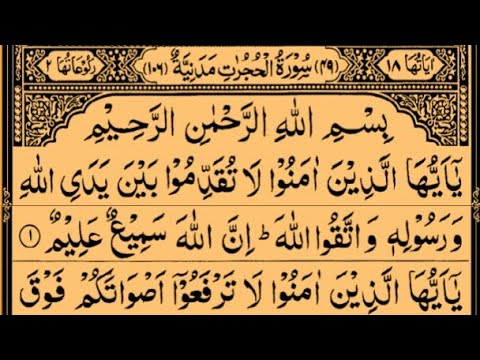 اٰيَاتُهَا ١٨ (٤٩) سُوْرَةُ الْحُجُرٰتِ مَدَنِيَّةٌ (١٠٦) رُكُوْعَاتُهَا ٢
بِسْمِ اللهِ الرَّحْمٰنِ الرَّحِيْمِ
يٰۤاَيُّهَا الَّذِيْنَ اٰمَنُوْا لَا تُقَدِّمُوْا بَيْنَ يَدَيِ اللهِ
وَرَسُوْلِهٖ وَاتَّقُوا اللهَ ؕ اِنَّ اللهَ سَمِيْعٌ عَلِيْمٌ ١
يٰۤاَيُّهَا الَّذِيْنَ اٰمَنُوْا لَا تَرْفَعُوْۤا اَصْوَاتَكُمْ فَوْقَ